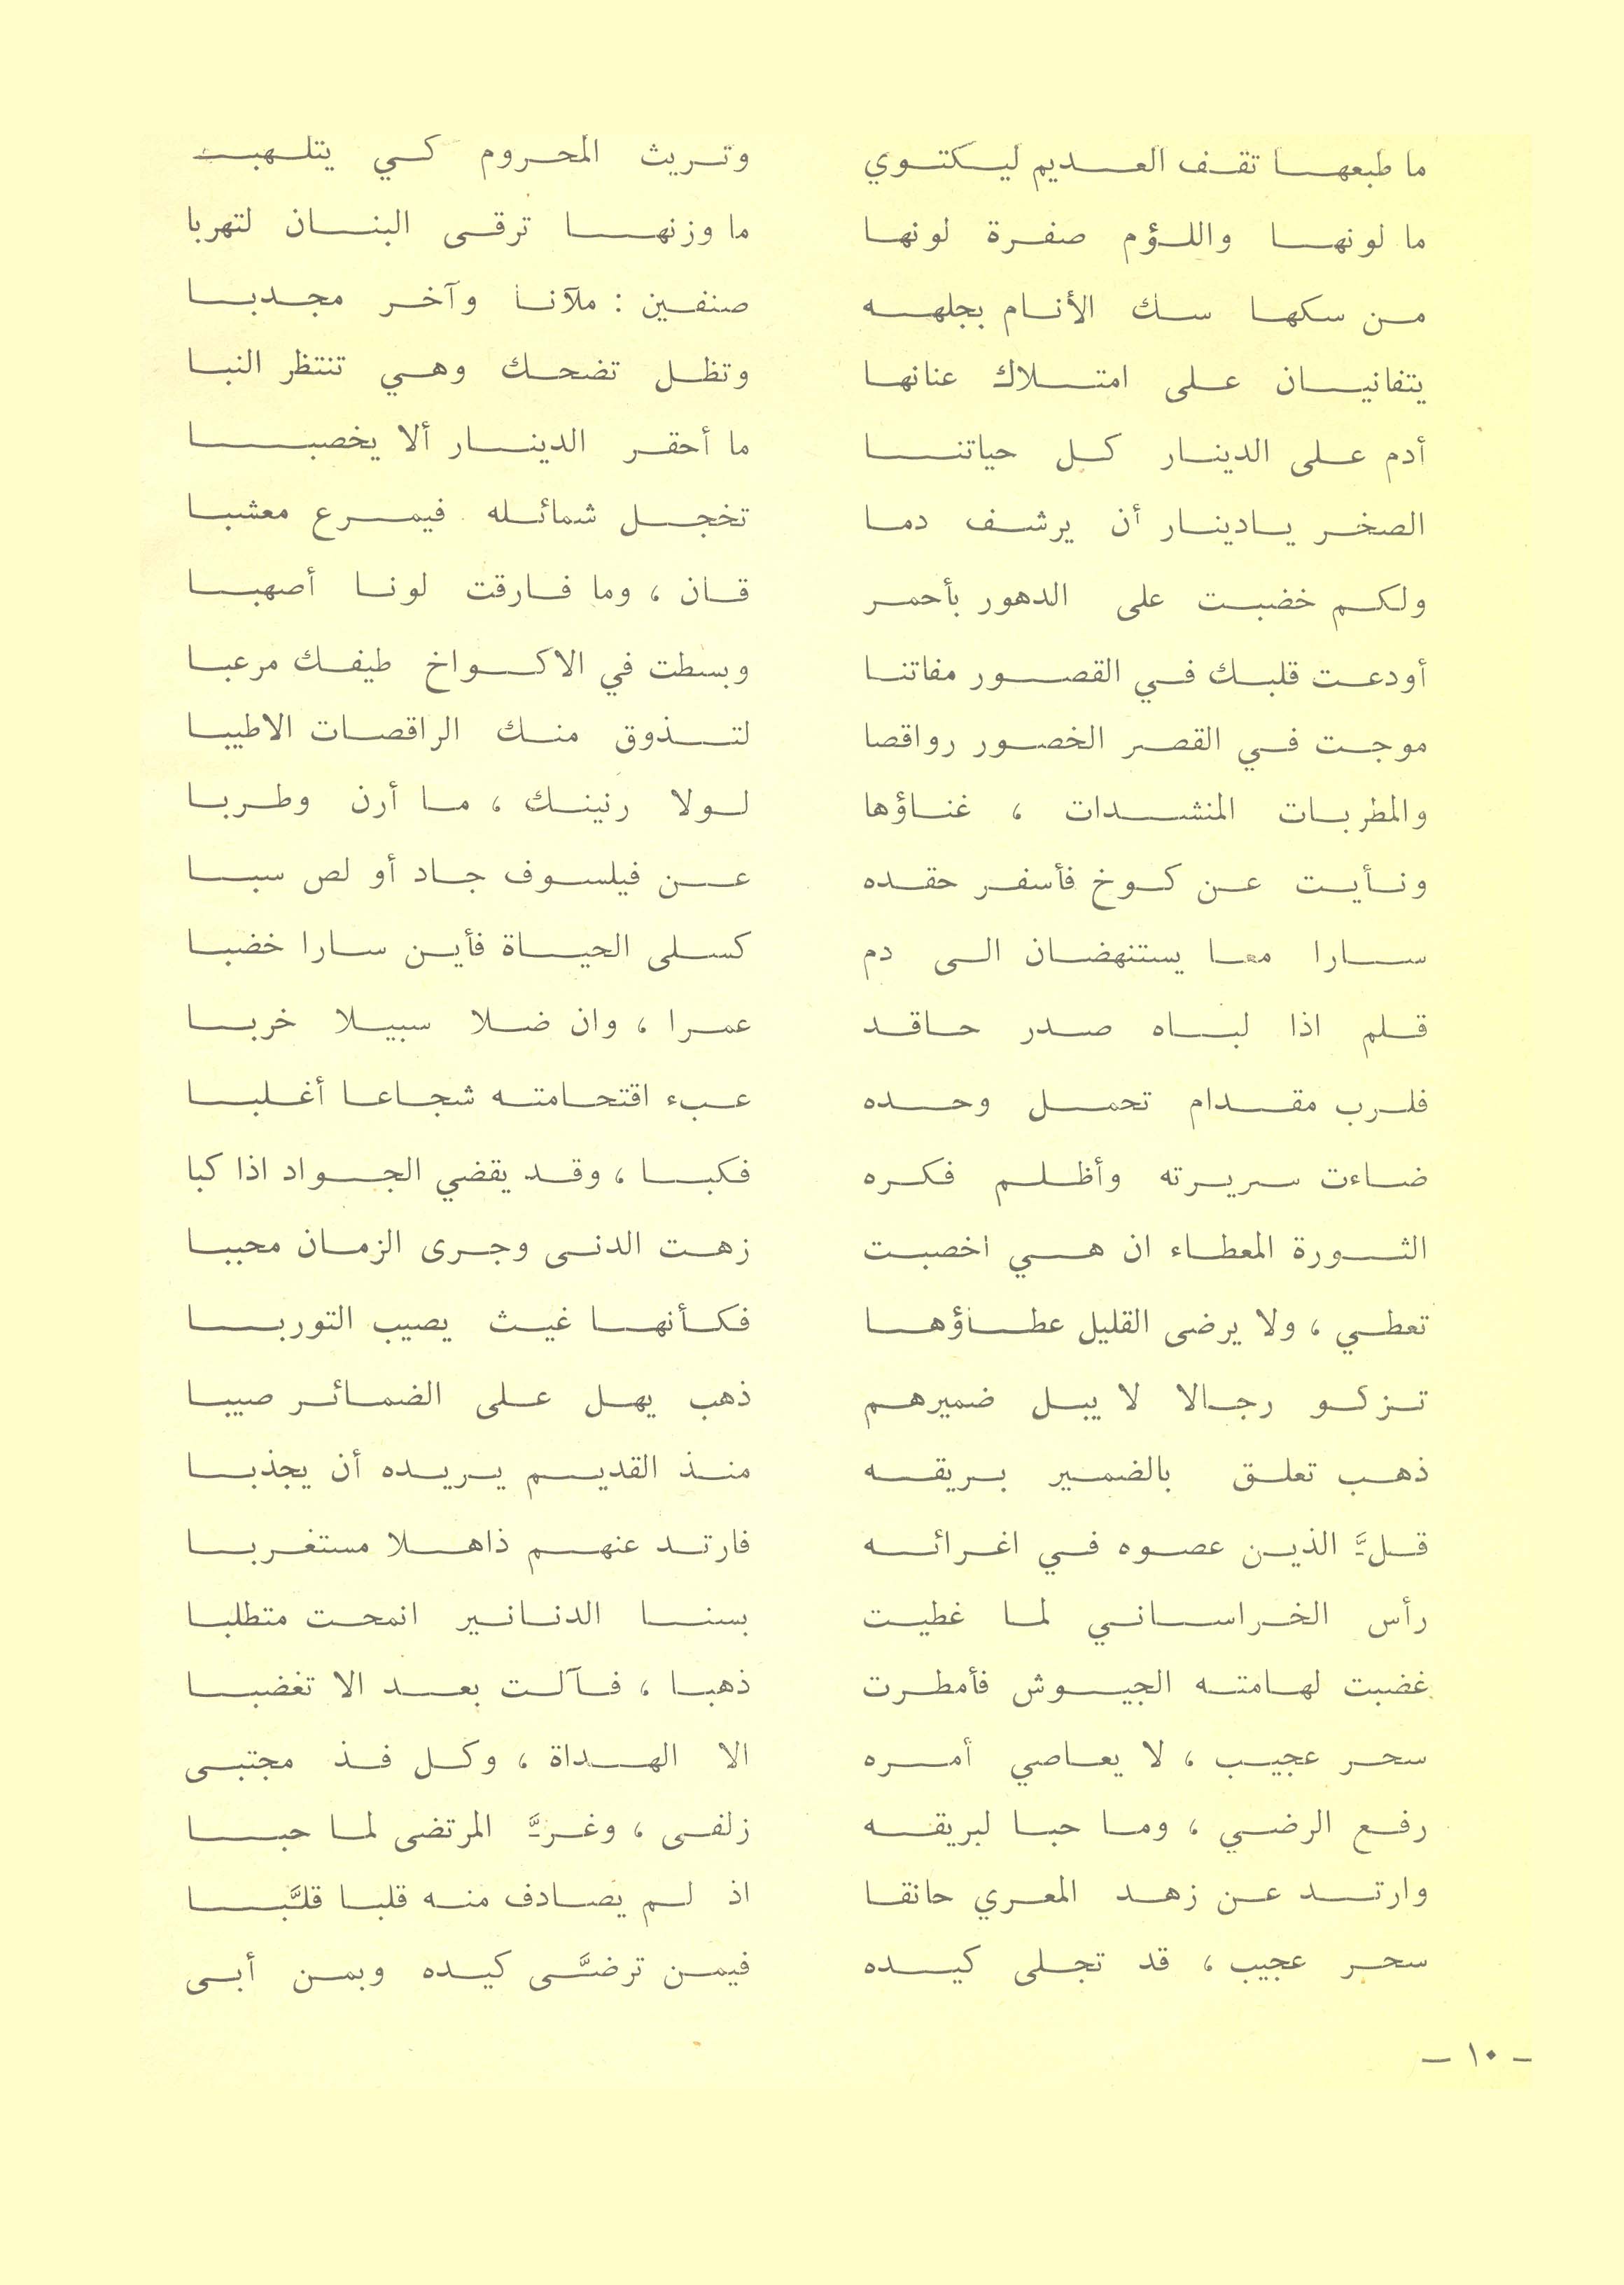 ما طبعها تقف العديم ليكتوي وتريث المحروم كي يتلهبـ
ما لونها واللؤم صفرة لونها ما وزنها ترقى البنان لتهربا
من سكها سك الأنام بجلهه صنفين : ملآنا وآخر مجدبا
يتفانيان على امتلاك عنانها وتظل تضحك وهي تنتظر النبا
أدم على الدينار كل حياتنا ما أحقر الدينار ألا يخصبا
الصخر يادينار أن يرشف دما تخجل شمائله فيمرع معشبا
ولكم خضبت على الدهور بأحمر قان ، وما فارقت لونا أصهبا
أودعت قلبك في القصور مفاتنا وبسطت في الاكواخ طيفك مرعبا
موجت في القصر الخصور رواقصا لتذوق منك الراقصات الاطيبا
والمطربات المنشدات ، غناؤها لولا رنينك ، ما أرن وطربا
ونأيت عن كوخ فأسفر حقده عن فيلسوف جاد أو لص سبا
سارا معا يستنهضان الى دم كسلى الحياة فأين سارا خضبا
قلم اذا لباه صدر حاقد عمرا ، وان ضلا سبيلا خربا
فلرب مقدام تحمل وحده عبء اقتحامته شجاعا أغلبا
ضاءت سريرته وأظلم فكره فكبا ، وقد يقضي الجواد اذا كبا
الثورة المعطاء ان هي اخصبت زهت الدنى وجرى الزمان محببا
تعطي ، ولا يرضى القليل عطاؤها فكأنها غيث يصيب التوربا
تزكو رجالا لا يبل ضميرهم ذهب يهل على الضمائر صيبا
ذهب تعلق بالضمير بريقه منذ القديم يريده أن يجذبا
قلَّ الذين عصوه في اغرائه فارتد عنهم ذاهلا مستغربا
رأس الخراساني لما غطيت بسنا الدنانير انمحت متطلبا
غضبت لهامته الجيوش فأمطرت ذهبا ، فآلت بعد الا تغضبا
سحر عجيب ، لا يعاصي أمره الا الهداة ، وكل فذ مجتبى
رفع الرضي ، وما حبا لبريقه زلفى ، وغرَّ المرتضى لما حبا
وارتد عن زهد المعري حانقا اذ لم يصادف منه قلبا قلَّبا
سحر عجيب ، قد تجلى كيده فيمن ترضَّى كيده وبمن أبى
– ١٠ –